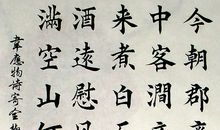 今朝郡
中客澗
来煮白
酒遠慰
滿空山
韋應物诗寄全